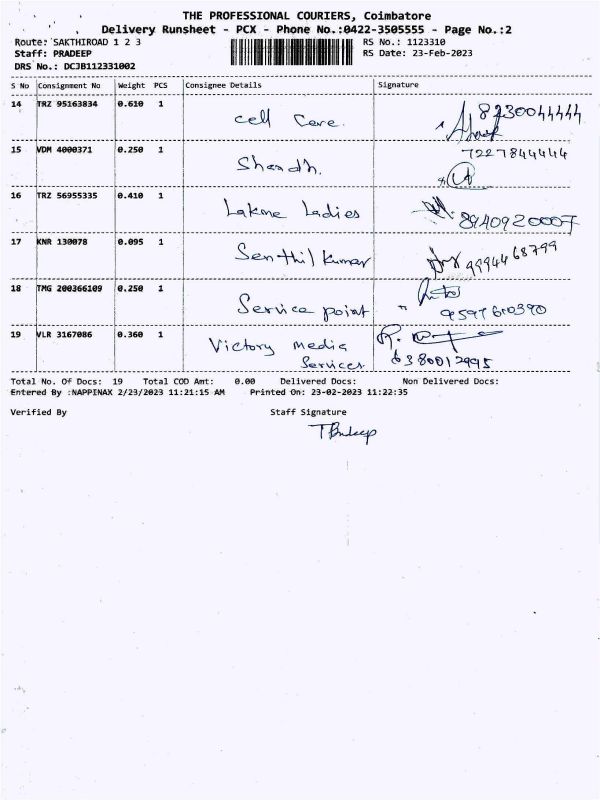 THE PROFESSIONAL COURIERS, Coimbatore
Delivery Runsheet - PCX - Phone No.:0422-3505555 - Page No.:2
Route: SAKTHIROAD 1 2 3 RS No.: 1123310
Staff: PRADEEP RS Date: 23-Feb-2023
DRS No.: DCJB112331002
S No Consignment No Weight PCS Consignee Details Signature
14 TRZ 95163834 0.610 1 Cell Care. 8730044444
15 VDM 4000371 0.250 1 Shandh. 7227844444
16 TRZ 56955335 0.410 1 Lakme Ladies 8940920007
17 KNR 130078 0.095 1 Senthil Kumar 9994468799
18 TMG 200366109 0.250 1 Service point 9597610390
19 VLR 3167086 0.360 1 Victory Media
Services. 6380012995
Total No. Of Docs: 19 Total COD Amt: 0.00 Delivered Docs: Non Delivered Docs:
Entered By :NAPPINAX 2/23/2023 11:21:15 AM Printed On: 23-02-2023 11:22:35
Verified By Staff Signature